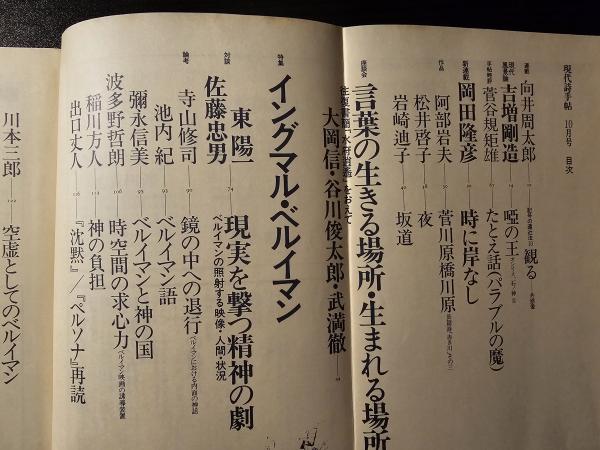 現代詩手帖 10月号 目次
連載
向井周太郎 観る
現代風景論
吉増剛造 啞の王
手帖時評
菅谷規矩雄 たとえ話(パラブルの魔)
新連載
岡田隆彦 時に岸なし
作品
阿部岩夫 菅川原橋川原
松井啓子 夜
岩崎迪子 坂道
座談会
言葉の生きる場所・生まれる場所
大岡信・谷川俊太郎・武満徹
特集
イングマル・ベルイマン
対談
東陽一
佐藤忠男 74 現実を撃つ精神の劇
ベルイマンの照射する映像・人間・状況
論考
寺山修司 90 鏡の中への退行 ベルイマンにおける内面の神話
池内紀 93 ベルイマン語
彌永信美 95 ベルイマンと神の国
波多野哲朗 106 時空間の求心力 ベルイマン映画の誘導装置
稲川方人 神の負担
出口丈人 『沈黙』/『ペルソナ』再読
川本三郎 122 空虚としてのベルイマン